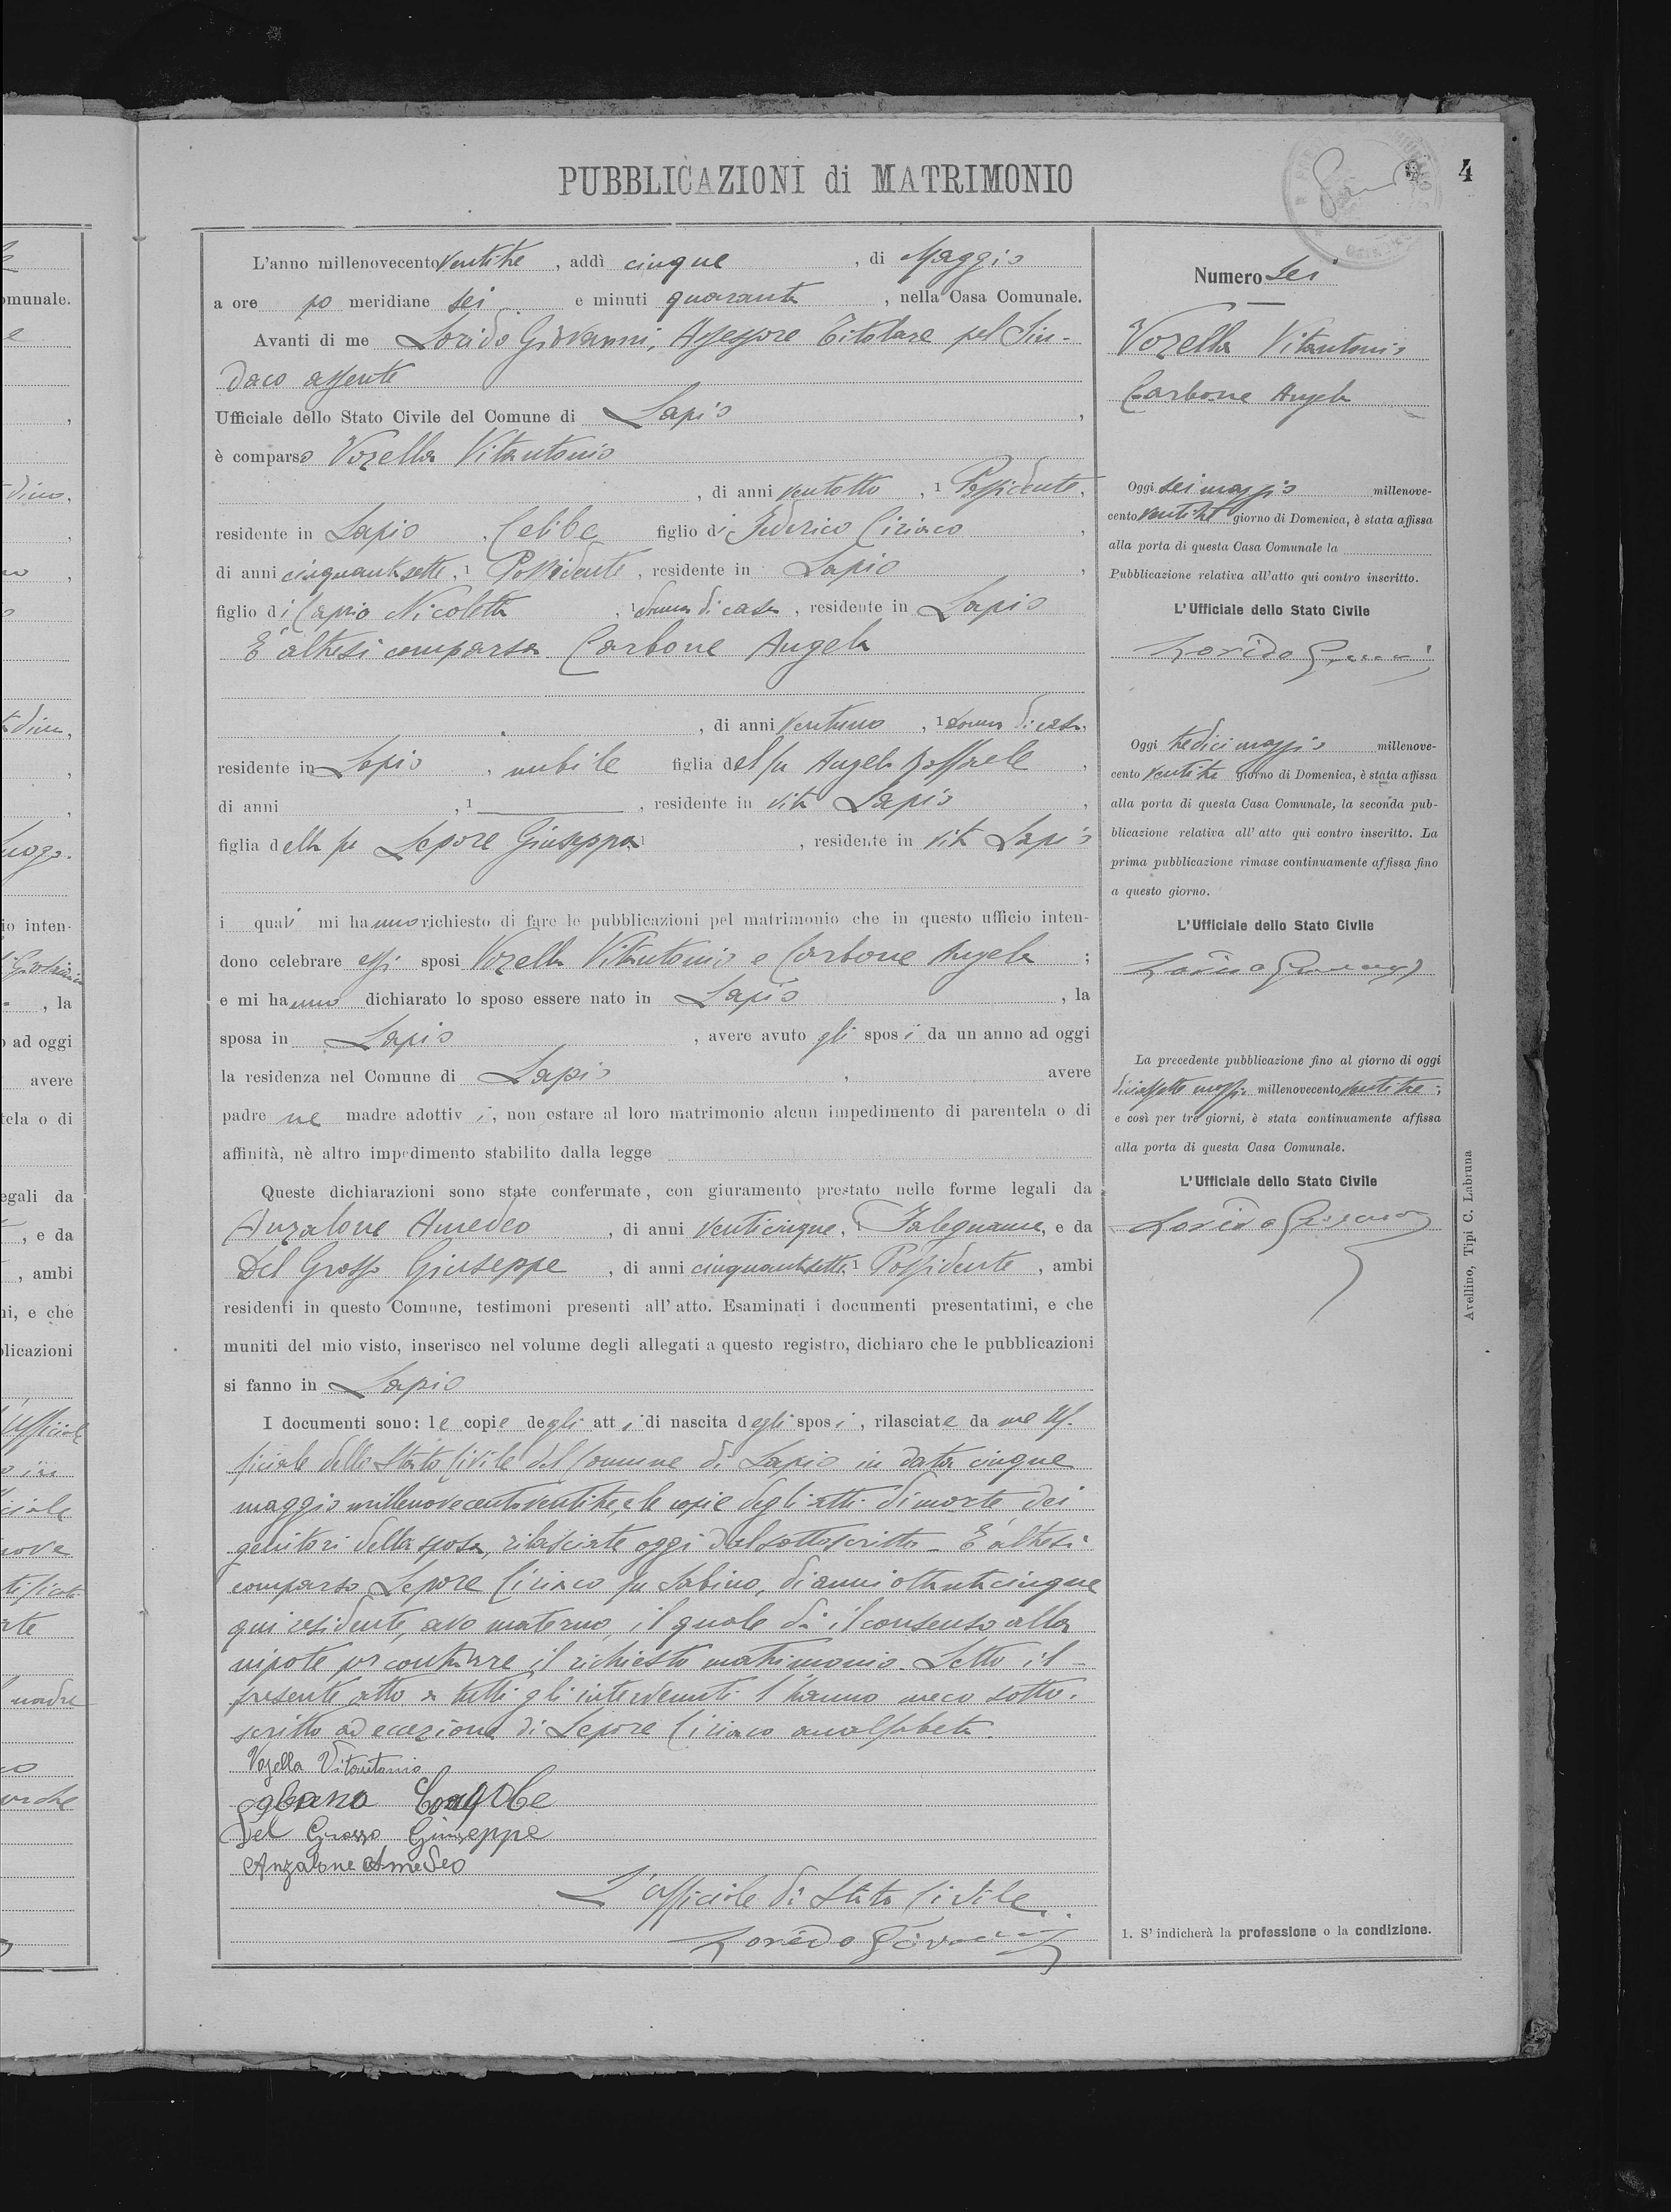 PUBBLICAZIONI di MATRIMONIO
4
L'anno millenovecento ventitre, addì cinque, di Maggio
a ore po meridiane sei e minuti quaranta, nella Casa Comunale.
Avanti di me Lorido Giovanni, Assessore Titolare pel Sin-
daco assente
Ufficiale dello Stato Civile del Comune di Lapio,
è comparso Vozella Vitantonio
, di anni ventotto, 1 Possidente,
residente in Lapio, Celibe figlio di Federico Ciriaco,
di anni cinquantasette, 1 Possidente, residente in Lapio,
figlio di Capio Nicoletta, 1 donna di casa, residente in Lapio
E' altresì comparsa Carbone Angela
, di anni ventuno, 1 donna di casa,
residente in Lapio, nubile figlia del fu Angelo Raffaele,
di anni , 1 , residente in vita Lapio,
figlia della fu Lepore Giuseppa 1 , residente in vita Lapio
i quali mi hanno richiesto di fare le pubblicazioni pel matrimonio che in questo ufficio inten-
dono celebrare essi sposi Vozella Vitantonio e Carbone Angela;
e mi hanno dichiarato lo sposo essere nato in Lapio, la
sposa in Lapio, avere avuto gli sposi da un anno ad oggi
la residenza nel Comune di Lapio, avere
padre ne madre adottivi, non ostare al loro matrimonio alcun impedimento di parentela o di
affinità, nè altro impedimento stabilito dalla legge
Queste dichiarazioni sono state confermate, con giuramento prestato nelle forme legali da
Anzalone Amedeo, di anni venticinque, 1 Falegname, e da
Del Grosso Giuseppe, di anni cinquantasette, 1 Possidente, ambi
residenti in questo Comune, testimoni presenti all'atto. Esaminati i documenti presentatimi, e che
muniti del mio visto, inserisco nel volume degli allegati a questo registro, dichiaro che le pubblicazioni
si fanno in Lapio
I documenti sono: le copie degli atti di nascita degli sposi, rilasciate da me Uf-
ficiale dello Stato Civile del Comune di Lapio in data cinque
maggio millenovecentoventitre, e le copie degli atti di morte dei
genitori della sposa, rilasciate oggi dal sottoscritto - E' altresì
comparso Lepore Ciriaco fu Sabino, di anni ottantacinque
qui residente, avo materno, il quale dà il consenso alla
nipote per contrarre il richiesto matrimonio. Letto il
presente atto a tutti gli intervenuti l'hanno meco sotto-
scritto ad eccezione di Lepore Ciriaco analfabeta.
Vozella Vitantonio
Del Grosso Giuseppe
Anzalone Amedeo
L'Ufficiale di Stato Civile
Lorido Giovanni
Numero Sei
Vozella Vitantonio
Carbone Angela
Oggi sei maggio millenove-
cento ventitre giorno di Domenica, è stata affissa
alla porta di questa Casa Comunale la
Pubblicazione relativa all'atto qui contro inscritto.
L'Ufficiale dello Stato Civile
Lorido Giovanni
Oggi tredici maggio millenove-
cento ventitre giorno di Domenica, è stata affissa
alla porta di questa Casa Comunale, la seconda pub-
blicazione relativa all'atto qui contro inscritto. La
prima pubblicazione rimase continuamente affissa fino
a questo giorno.
L'Ufficiale dello Stato Civile
Lorido Giovanni
La precedente pubblicazione fino al giorno di oggi
diciassette maggio millenovecento ventitre;
e così per tre giorni, è stata continuamente affissa
alla porta di questa Casa Comunale.
L'Ufficiale dello Stato Civile
Lorido Giovanni
Avellino, Tipi C. Labruna
1. S'indicherà la professione o la condizione.